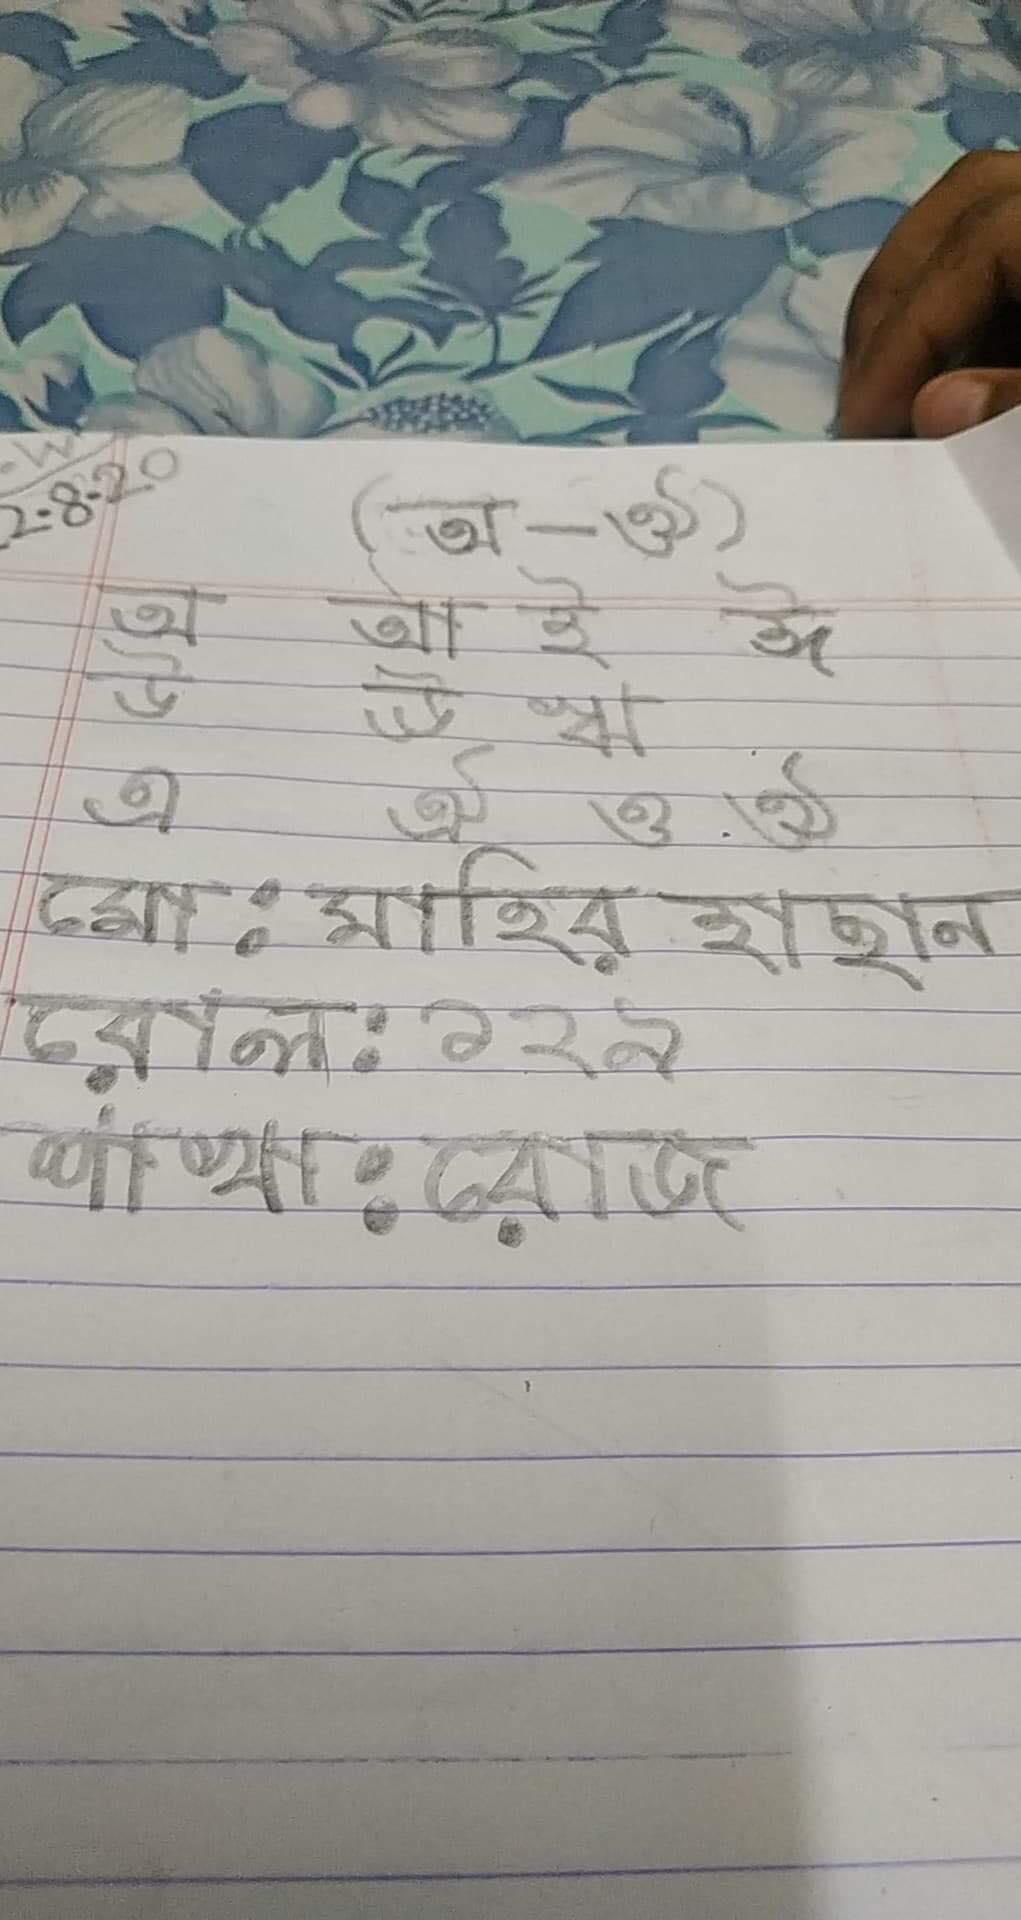 2-8-20
(অ - ঔ)
অ আ ই ঈ
উ ঊ ঋ
এ ঐ ও ঔ
মো: মাহির হাছান
রোল: ১২৯
শাখা: রোজ